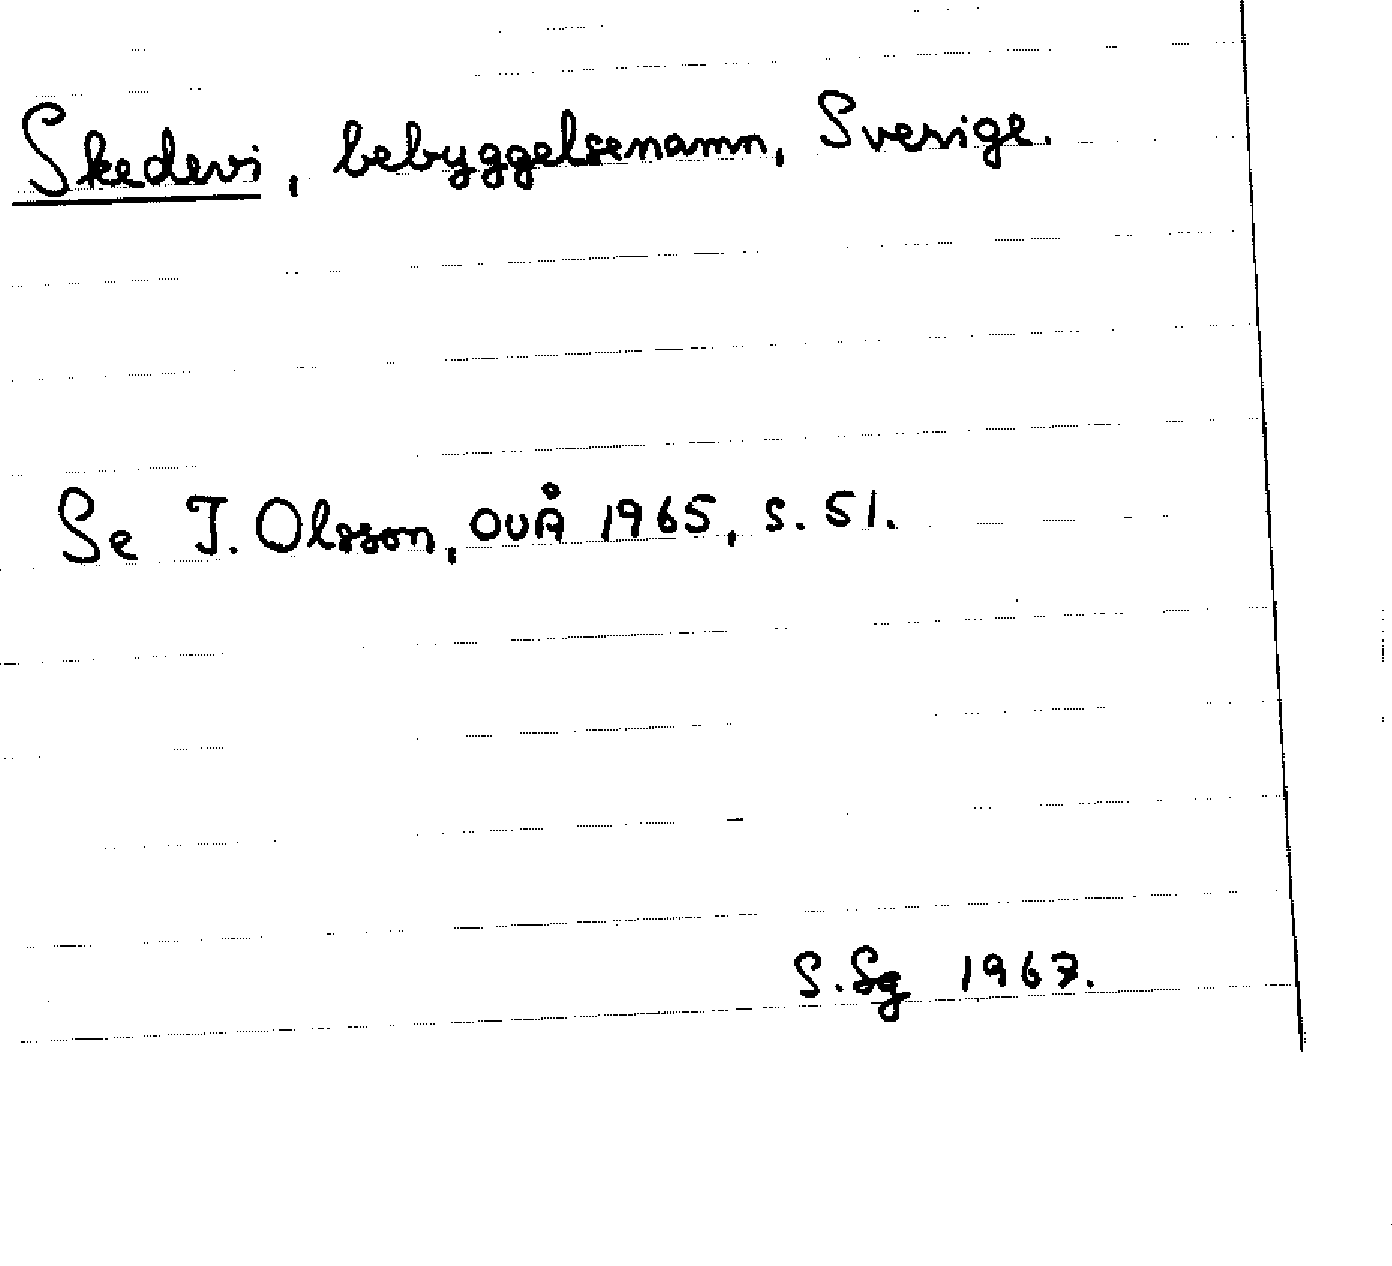 Skedevi, bebyggelsenamn, Sverige.
Se I. Olsson, OUÅ 1965, s. 51.
S.Sg 1967.